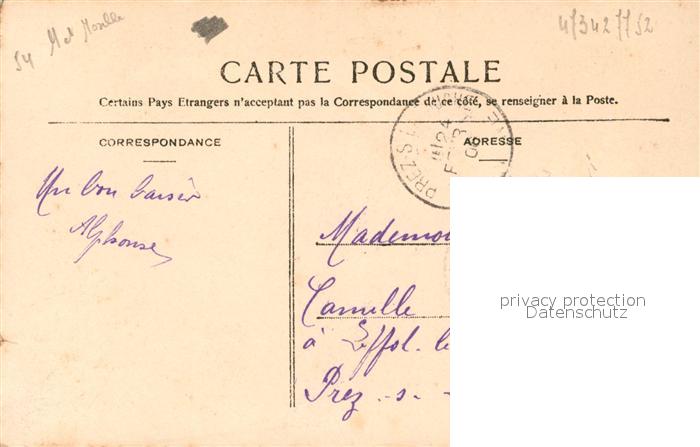 54 M et Moselle
4/3427/52
CARTE POSTALE
Certains Pays Etrangers n'acceptant pas la Correspondance de ce côté, se renseigner à la Poste.
CORRESPONDANCE
ADRESSE
PREZ-S
24
Un bon baiser
Alphonse
Mademoi
Camille
à Effol. le
Prez -s-
privacy protection
Datenschutz